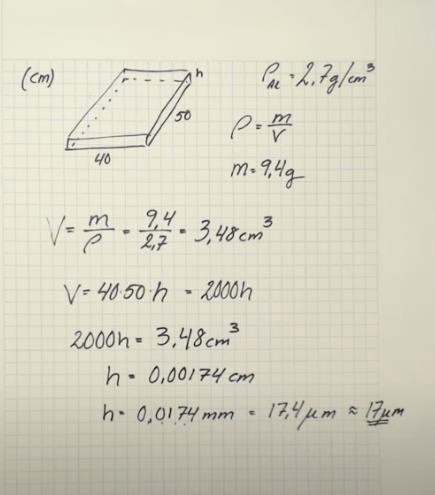 (cm)
h
50
40
ρ_Al = 2,7g/cm³
ρ = m/V
m = 9,4g
V = m/ρ = 9,4/2,7 = 3,48cm³
V = 40·50·h = 2000h
2000h = 3,48cm³
h = 0,00174cm
h = 0,0174mm = 17,4μm ≈ 17μm